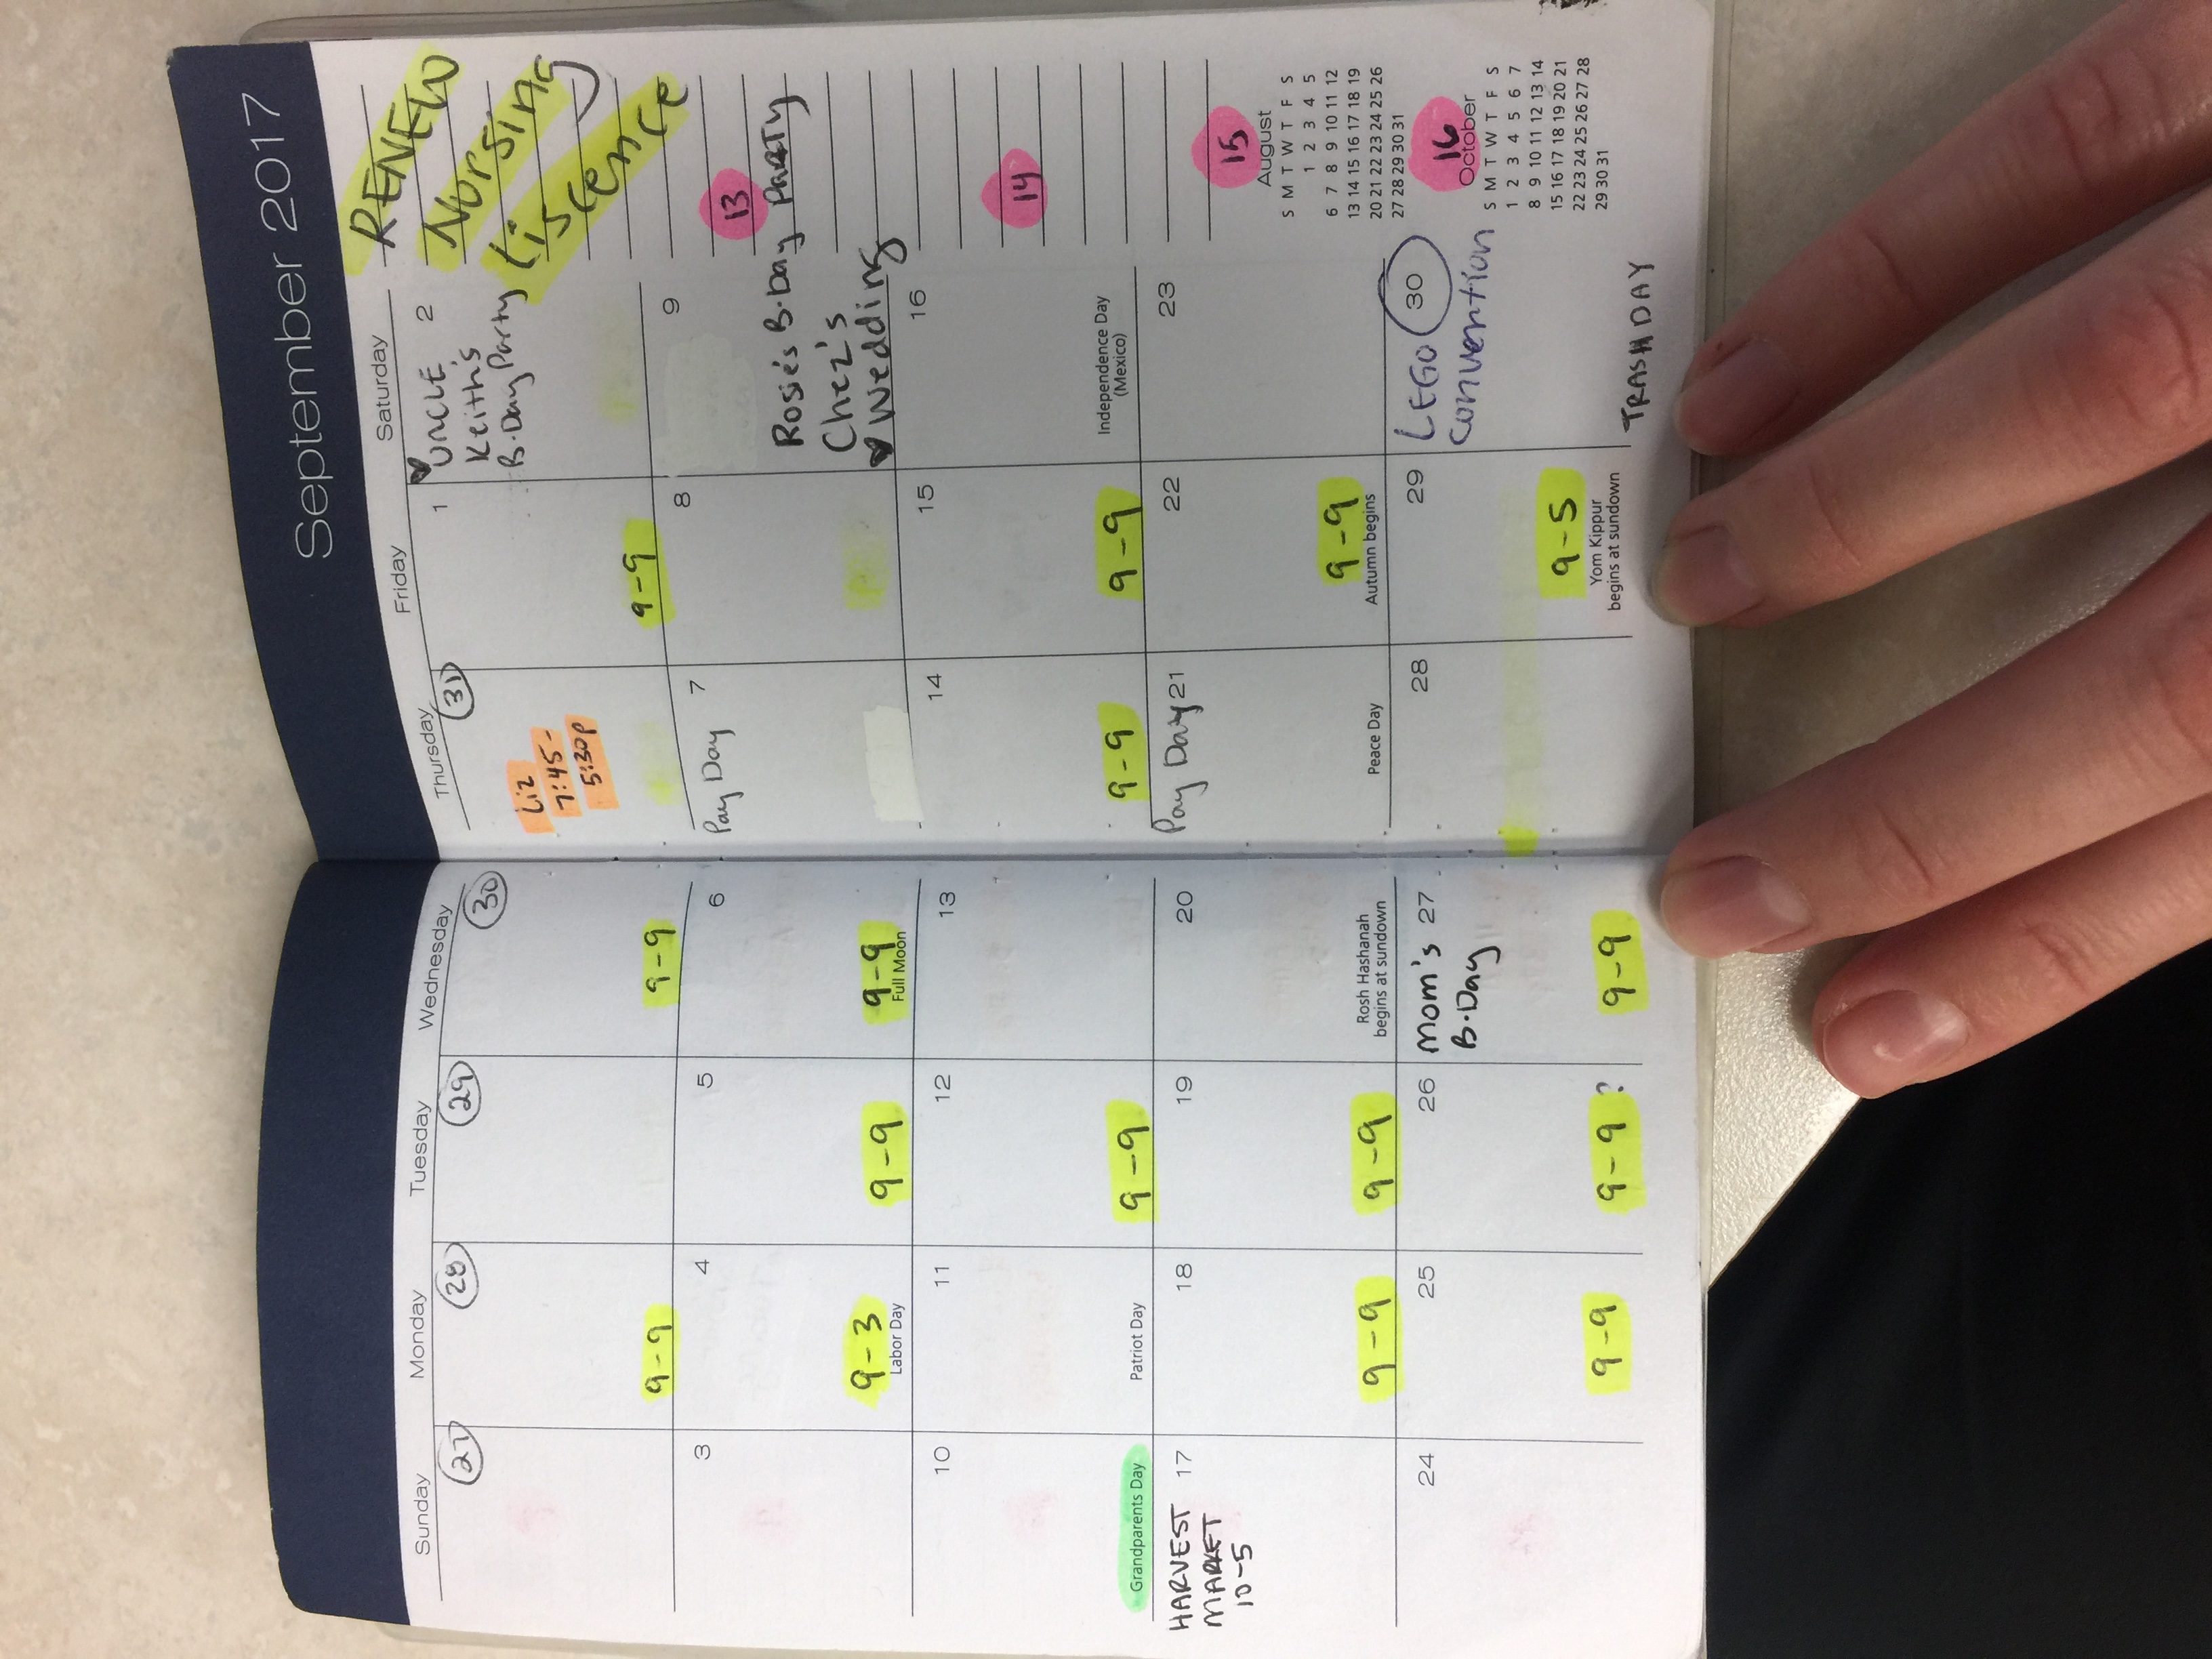 September 2017
Sunday Monday Tuesday Wednesday Thursday Friday Saturday
RENEW
Nursing
Liscence
27
28
9-9
29
30
9-9
31
Liz
7:45-
5:30p
1
9-9
2
UNCLE
Keith's
B-Day Party
3
4
9-3
Labor Day
5
9-9
6
9-9
Full Moon
7
Pay Day
8
9
Rosie's B-Day PARTY
Chez's
Wedding
13
10
Grandparents Day
11
Patriot Day
12
9-9
13
14
9-9
15
9-9
16
Independence Day
(Mexico)
14
17
HARVEST
MARKET
10-5
18
9-9
19
9-9
20
Rosh Hashanah
begins at sundown
21
Pay Day
Peace Day
22
9-9
Autumn begins
23
15
24
25
9-9
26
9-9?
27
Mom's
B-Day
9-9
28
29
9-5
Yom Kippur
begins at sundown
30
LEGO
convention
TRASH DAY
August
S M T W T F S
1 2 3 4 5
6 7 8 9 10 11 12
13 14 15 16 17 18 19
20 21 22 23 24 25 26
27 28 29 30 31
16
October
S M T W T F S
1 2 3 4 5 6 7
8 9 10 11 12 13 14
15 16 17 18 19 20 21
22 23 24 25 26 27 28
29 30 31